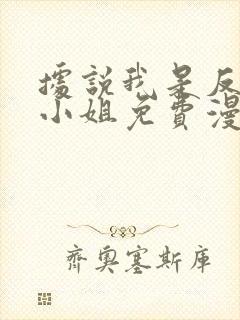 據說我是反
小姐免費漫
齊奧塞斯庫